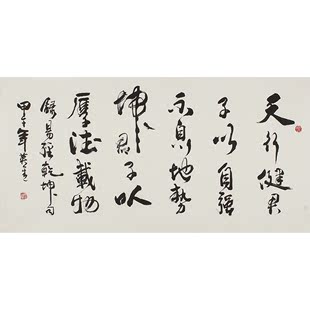 天行健君
子以自强
不息地势
坤君子以
厚德载物
录易经乾坤句
甲午年